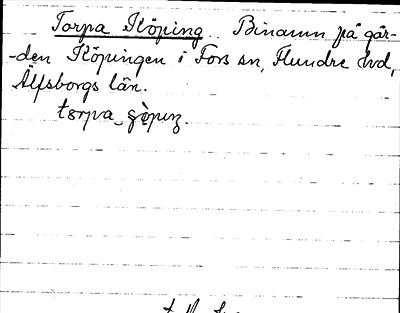 Torpa Köping.. Binamn på går-
-den Köpingen i Fors sn, Flundre hd,
Älfsborgs län.